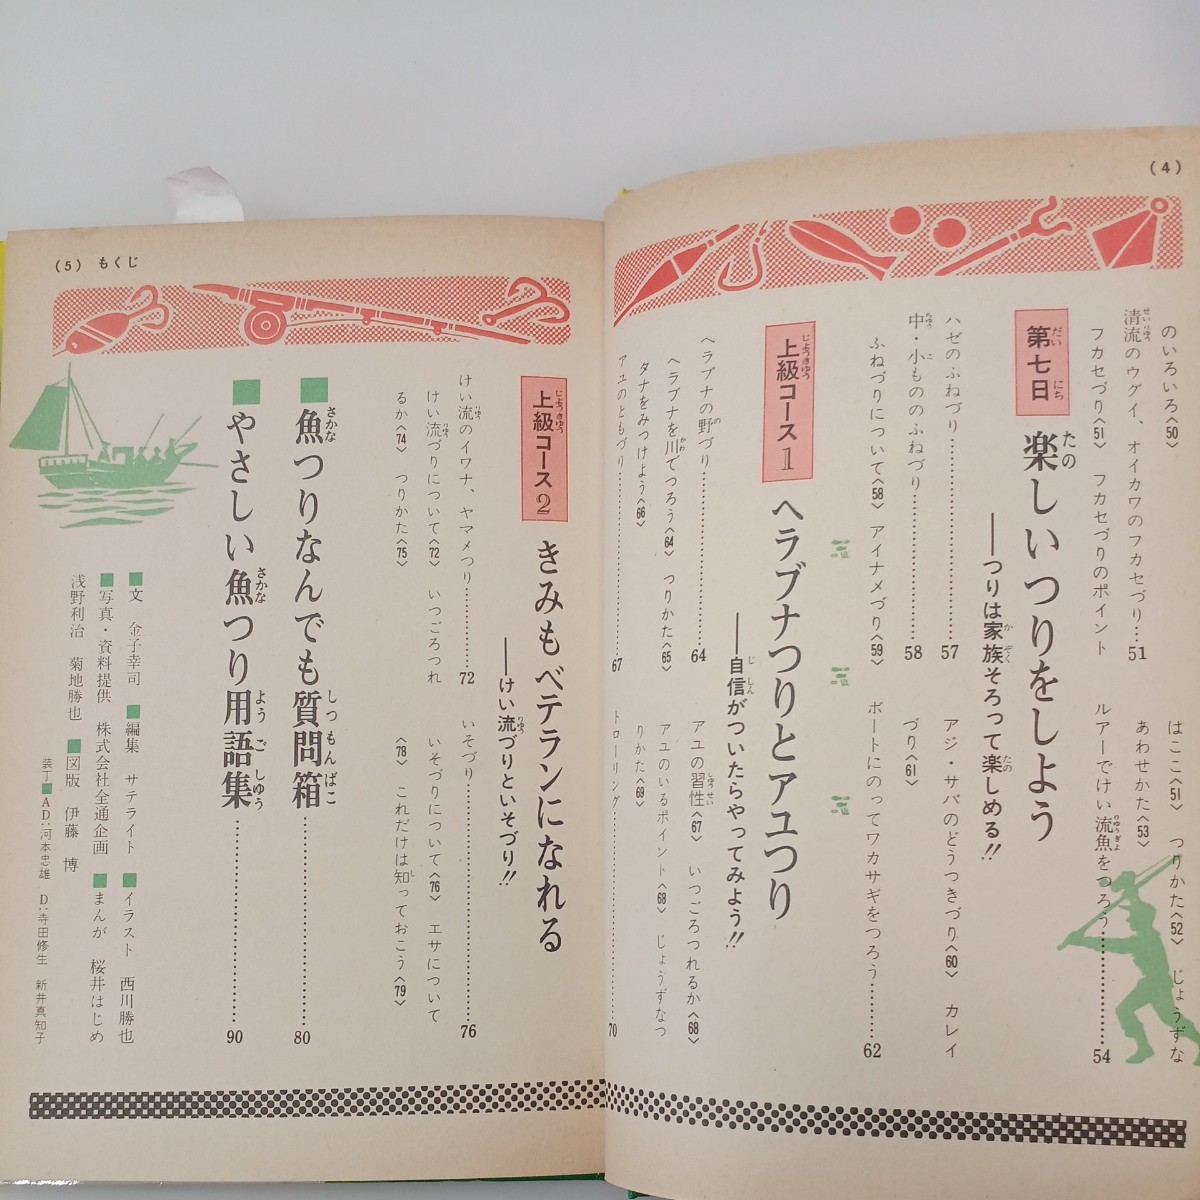 (4)
のいろいろ〈50〉
清流のウグイ、オイカワのフカセづり…51
フカセづり〈51〉 フカセづりのポイント
はここ〈51〉 つりかた〈52〉 じょうずな
あわせかた〈53〉
ルアーでけい流魚をつろう……………54
第七日 楽しいつりをしよう
——つりは家族そろって楽しめる!!
ハゼのふねづり……………57
中・小もののふねづり……………58
ふねづりについて〈58〉 アイナメづり〈59〉
アジ・サバのどうつきづり〈60〉 カレイ
づり〈61〉
ボートにのってワカサギをつろう……62
上級コース1 ヘラブナつりとアユつり
——自信がついたらやってみよう!!
ヘラブナの野づり……………64
ヘラブナを川でつろう〈64〉 つりかた〈65〉
タナをみつけよう〈66〉
アユのともづり……………67
アユの習性〈67〉 いつごろつれるか〈68〉
アユのいるポイント〈68〉 じょうずなつ
りかた〈69〉
トローリング……………70
(5) もくじ
上級コース2 きみもベテランになれる
——けい流づりといそづり!!
けい流のイワナ、ヤマメつり………72
けい流づりについて〈72〉 いつごろつれ
るか〈74〉 つりかた〈75〉
いそづり……………76
いそづりについて〈76〉 エサについて
〈78〉 これだけは知っておこう〈79〉
■魚つりなんでも質問箱……………80
■やさしい魚つり用語集……………90
■文 金子幸司 ■編集 サテライト ■イラスト 西川勝也
■写真・資料提供 株式会社全通企画 ■まんが 桜井はじめ
浅野利治 菊地勝也 ■図版 伊藤 博
装丁■AD:河本忠雄 D:寺田修生 新井真知子